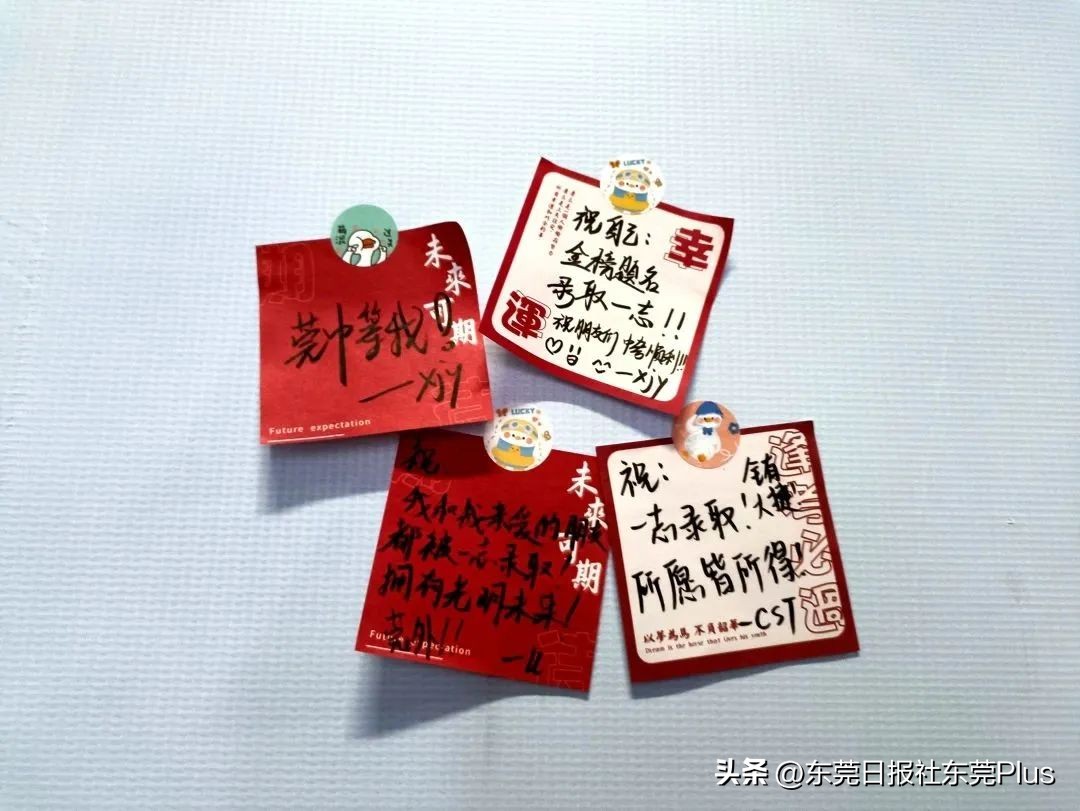 未來可期
莞中等我!
—xjy
Future expectation
LUCKY
祝自己:
金榜题名
录取一志!!
祝朋友们 中考顺利!!
—xjy
幸
運
LUCKY
未來可期
祝
我和我亲爱的朋友
都被一志录取!
拥有光明未来!
莞外!!
Future expectation
祝:
全有
大捷
一志录取!
所愿皆所得!
—CST
以夢為馬 不負韶華
Dream is the horse that lives his youth
头条 @东莞日报社东莞Plus